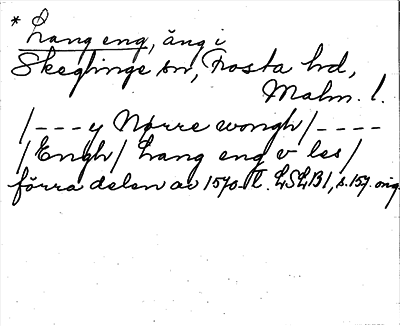 * Lang eng, äng i
Skeglinge sn, Frosta hd,
Malm. l.
/---y Nørre wongh/----
/Engh/ Lang eng v les/
förra delen av 1570-t. LSLB1, s.157. orig.